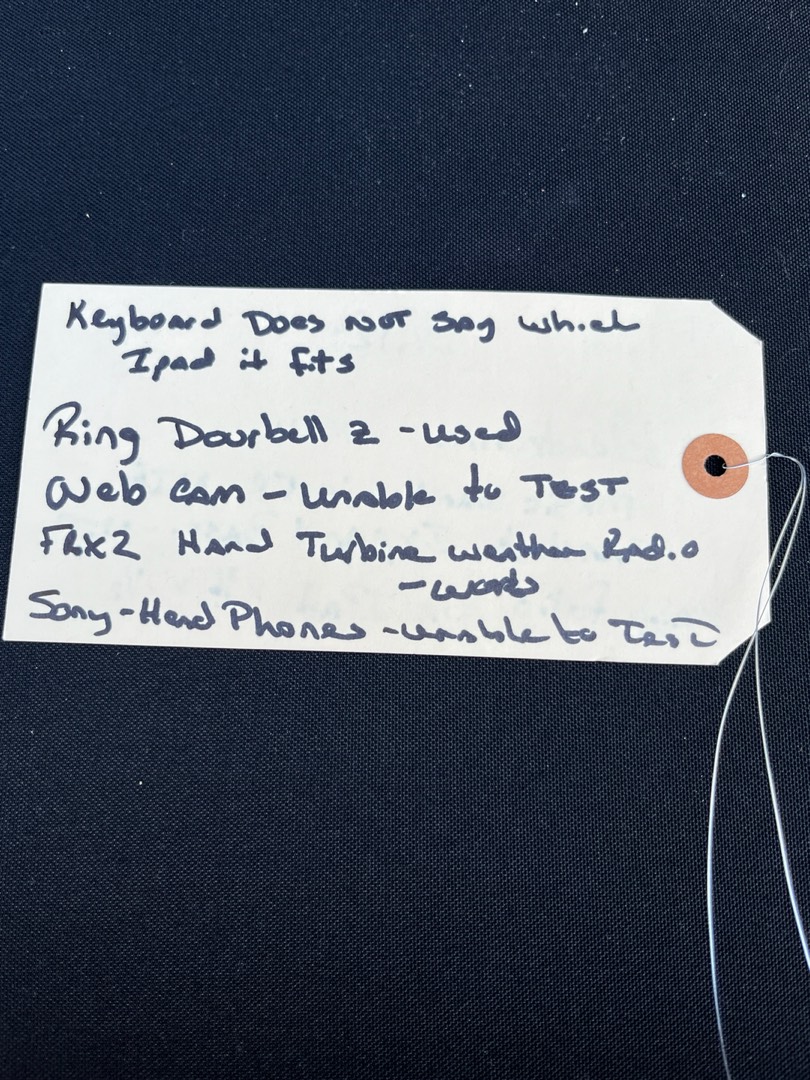 Keyboard Does NOT Say which
Ipad it fits
Ring Doorbell 2 - used
Web cam - unable to TEST
FRX2 Hand Turbine weather Radio
- works
Sony - Head Phones - unable to Test